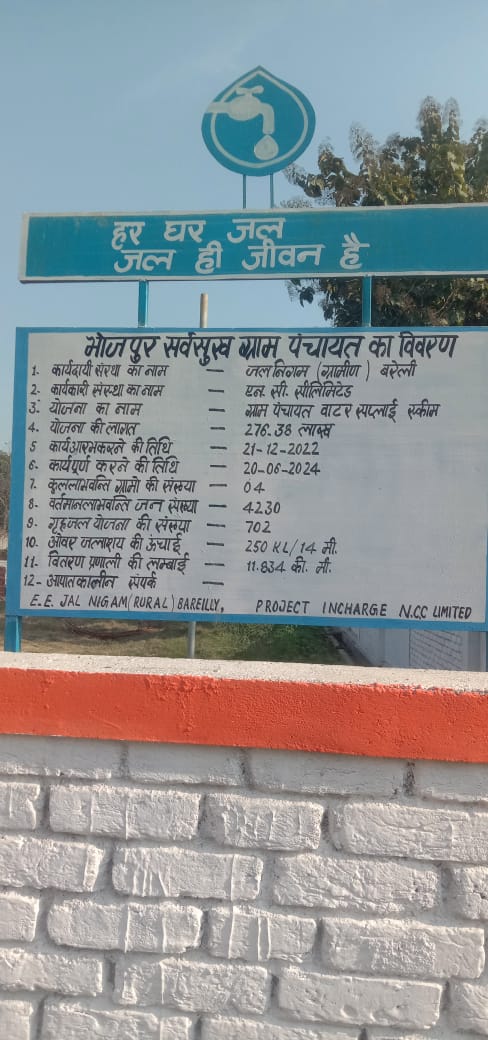 हर घर जल
जल ही जीवन है
भोजपुर सर्वसुख ग्राम पंचायत का विवरण
1. कार्यदायी संस्था का नाम — जल निगम (ग्रामीण) बरेली
2. कार्यकारी संस्था का नाम — एन. सी. सीलिमिटेड
3. योजना का नाम — ग्राम पंचायत वाटर सप्लाई स्कीम
4. योजना की लागत — 276.38 लाख
5 कार्यआरमकरने की तिथि — 21-12-2022
6. कार्यपूर्ण करने की तिथि — 20-06-2024
7. कुललाभवन्ति ग्रामो की संख्या — 04
8. वर्तमानलाभवन्ति जन संख्या — 4230
9. गृहजल योजना की संख्या — 702
10. ओवर जलाशय की ऊंचाई — 250 KL/14 मी.
11. वितरण प्रणाली की लम्बाई — 11.834 की. मी.
12- आपातकालीन संपर्क —
E.E. JAL NIGAM (RURAL) BAREILLY, PROJECT INCHARGE N.C.C LIMITED